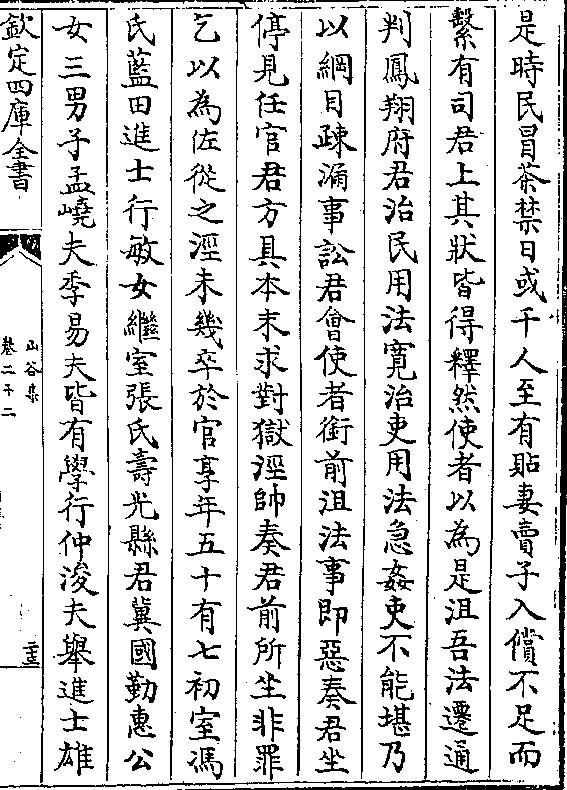 是時民冒茶禁日或千人至有貼妻賣子入償不足而
繫有司君上其狀皆得釋然使者以為是沮吾法遷通
判鳳翔府君治民用法寛治吏用法急姦吏不能堪乃
以綱目疎漏事訟君會使者銜前沮法事即惡奏君坐
停見任官君方具本末求對獄涇帥奏君前所坐非罪
乞以為佐從之涇未幾卒於官享年五十有七初室馮
氏藍田進士行敏女繼室張氏壽光縣君冀國勤惠公
女三男子孟嶢夫季易夫皆有學行仲浚夫舉進士雄
欽定四庫全書
山谷集
卷二十二